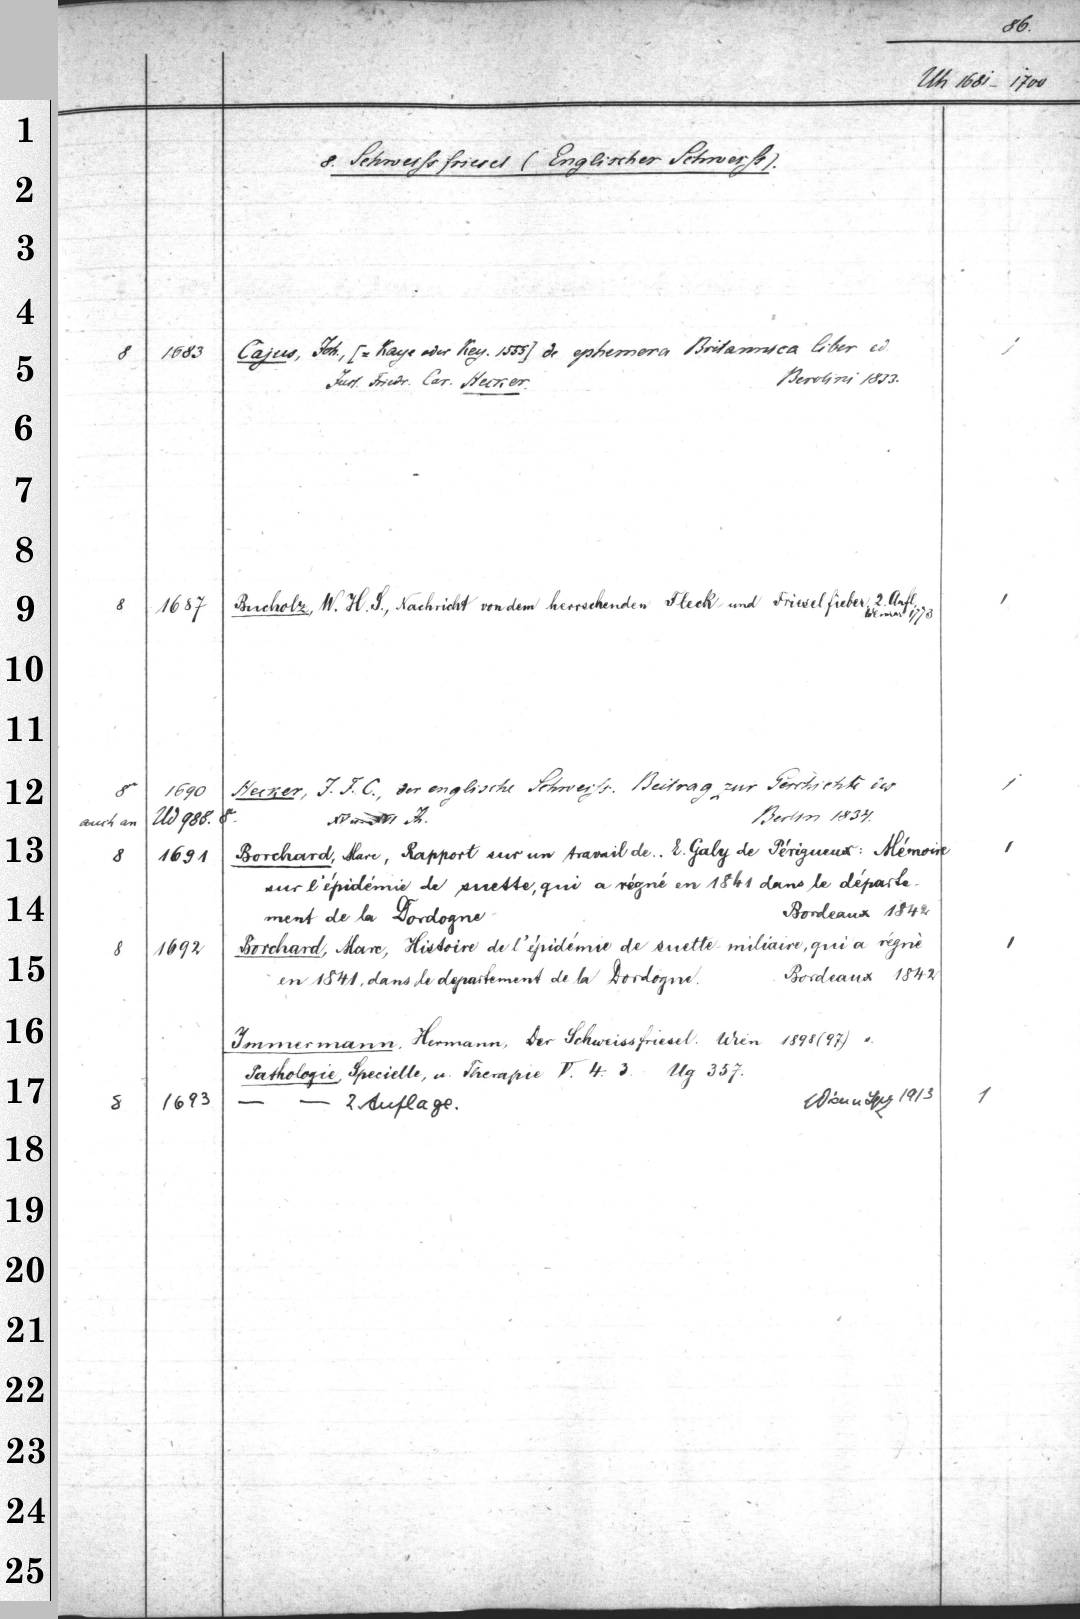 86.
Uh 1681 - 1700
8. Schweissfriesel (Englischer Schweiss).
8 1683 Cajus, Joh., [= Kaye oder Key. 1555] de ephemera Britannica liber ed. 1
Just. Friedr. Car. Hecker. Berolini 1833.
8 1687 Bucholz, W. H. S., Nachricht von dem herrschenden Fleck- und Frieselfieber, 2. Aufl. 1
Weimar 1773
8° 1690 Hecker, J. F. C., der englische Schweiss. Beitrag zur Geschichte des 1
auch an Ud 988. 8°. Jh. Berlin 1834.
8 1691 Borchard, Marc, Rapport sur un travail de.. E. Galy de Périgueux: Mémoire 1
sur l'épidémie de suette, qui a régné en 1841 dans le départe-
ment de la Dordogne Bordeaux 1842
8 1692 Borchard, Marc, Histoire de l'épidémie de suette miliaire, qui a régné 1
en 1841, dans le departement de la Dordogne. Bordeaux 1842
Immermann, Hermann, Der Schweissfriesel. Wien 1898(97)
Pathologie, Specielle, u. Therapie V. 4. 3. Ug 357.
8 1693 — — 2. Auflage. Wien u Lpzg 1913 1
1
2
3
4
5
6
7
8
9
10
11
12
13
14
15
16
17
18
19
20
21
22
23
24
25